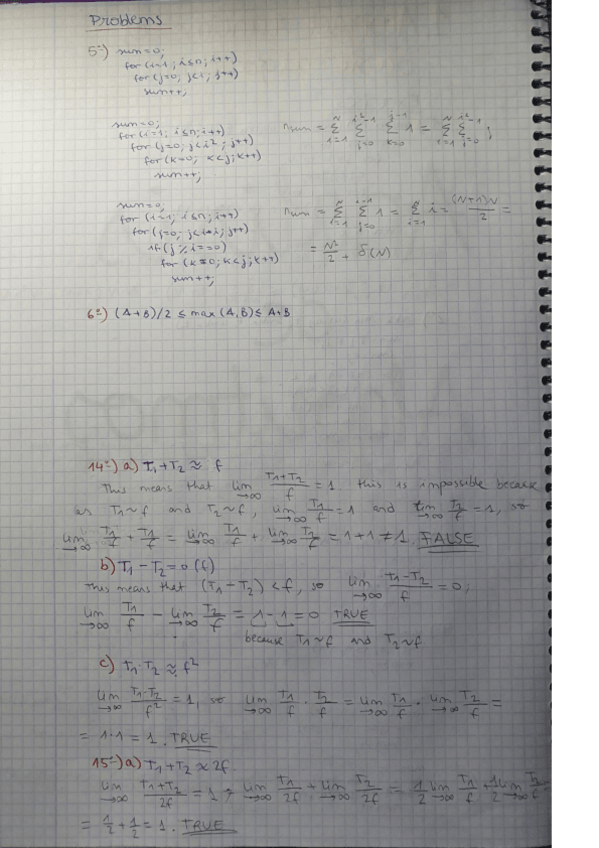 Problems
5º) sum=0;
for (i=1; i≤n; i++)
for (j=0; j<i; j++)
sum++;
sum=0;
for (i=1; i≤n; i++)
for (j=0; j<i²; j++)
for (k=0; k<j; k++)
sum++;
nsum = Σ_{i=1}^{N} Σ_{j=0}^{i²-1} Σ_{k=0}^{j-1} 1 = Σ_{i=1}^{N} Σ_{j=0}^{i²-1} j
sum=0;
for (i=1; i≤n; i++)
for (j=0; j<i*i; j++)
if (j % i == 0)
for (k=0; k<j; k++)
sum++;
nsum = Σ_{i=1}^{N} Σ_{j=0}^{i-1} 1 = Σ_{i=1}^{N} i = (N+1)N/2 =
= N²/2 + O(N)
6º) (A+B)/2 ≤ max (A,B) ≤ A+B
14º) a) T₁+T₂ ≈ f
This means that lim_{→∞} (T₁+T₂)/f = 1. this is impossible because
as T₁~f and T₂~f, lim_{→∞} T₁/f = 1 and lim_{→∞} T₂/f = 1, so
lim_{→∞} T₁/f + T₂/f = lim_{→∞} T₁/f + lim_{→∞} T₂/f = 1+1 ≠ 1. FALSE
b) T₁ - T₂ = o(f)
This means that (T₁-T₂) < f, so lim_{→∞} (T₁-T₂)/f = 0;
lim_{→∞} T₁/f - lim_{→∞} T₂/f = 1 - 1 = 0 TRUE
because T₁~f and T₂~f
c) T₁·T₂ ≈ f²
lim_{→∞} T₁·T₂/f² = 1, so lim_{→∞} T₁/f · T₂/f = lim_{→∞} T₁/f · lim_{→∞} T₂/f =
= 1·1 = 1. TRUE
15º) a) T₁+T₂ ≈ 2f
lim_{→∞} (T₁+T₂)/2f = 1 → lim_{→∞} T₁/2f + lim_{→∞} T₂/2f = 1/2 lim_{→∞} T₁/f + 1/2 lim_{→∞} T₂/f =
= 1/2 + 1/2 = 1. TRUE